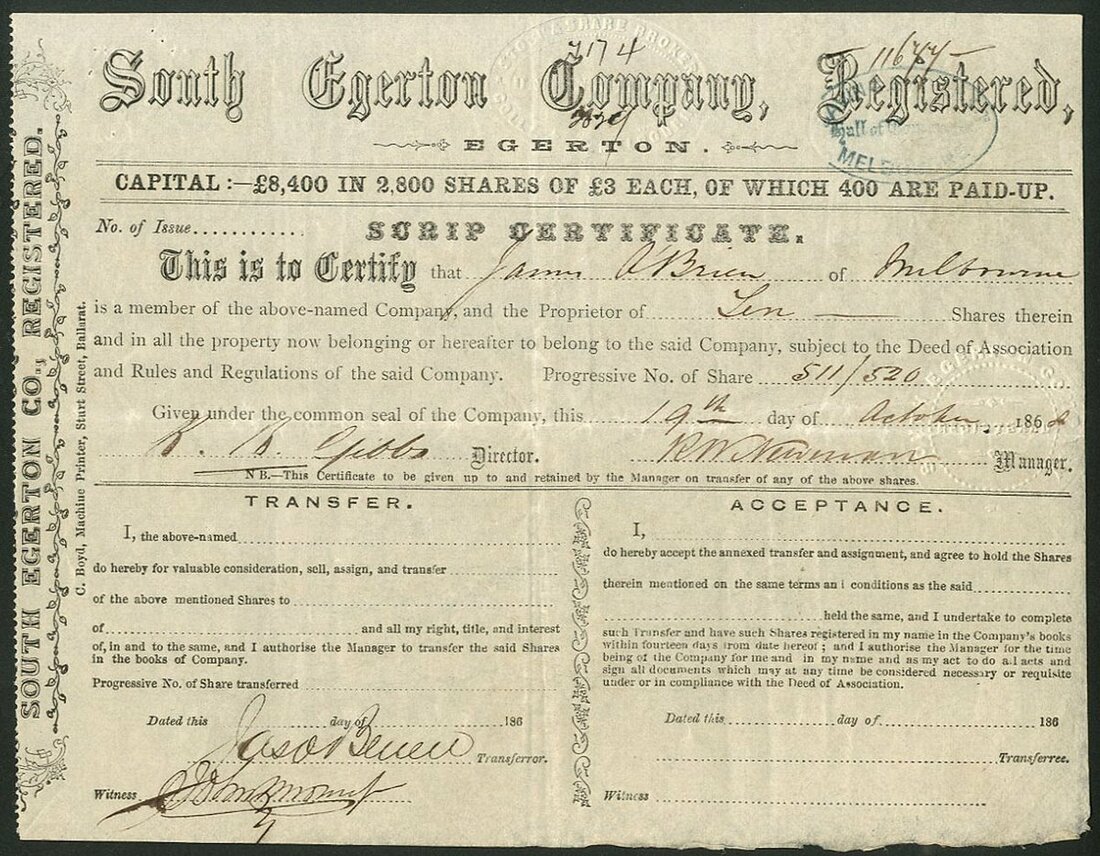 7174
11677
South Egerton Company, Registered,
EGERTON.
CAPITAL :—£8,400 IN 2,800 SHARES OF £3 EACH, OF WHICH 400 ARE PAID-UP.
No. of Issue............ SCRIP CERTIFICATE.
This is to Certify that James O'Brien of Melbourne
is a member of the above-named Company, and the Proprietor of Ten Shares therein
and in all the property now belonging or hereafter to belong to the said Company, subject to the Deed of Association
and Rules and Regulations of the said Company. Progressive No. of Share 511/520
Given under the common seal of the Company, this 19th day of October 1868
K. K. Gibbs Director. R W Newman Manager.
N B.—This Certificate to be given up to and retained by the Manager on transfer of any of the above shares.
TRANSFER.
I, the above-named
do hereby for valuable consideration, sell, assign, and transfer
of the above mentioned Shares to
of and all my right, title, and interest
of, in and to the same, and I authorise the Manager to transfer the said Shares
in the books of Company.
Progressive No. of Share transferred
Dated this day of 186
Jas O'Brien Transferror.
Witness
ACCEPTANCE.
I,
do hereby accept the annexed transfer and assignment, and agree to hold the Shares
therein mentioned on the same terms and conditions as the said
held the same, and I undertake to complete
such Transfer and have such Shares registered in my name in the Company's books
within fourteen days from date hereof ; and I authorise the Manager for the time
being of the Company for me and in my name and as my act to do all acts and
sign all documents which may at any time be considered necessary or requisite
under or in compliance with the Deed of Association.
Dated this day of 186
Transferree.
Witness
SOUTH EGERTON CO., REGISTERED.
C. Boyd, Machine Printer, Sturt Street, Ballarat.